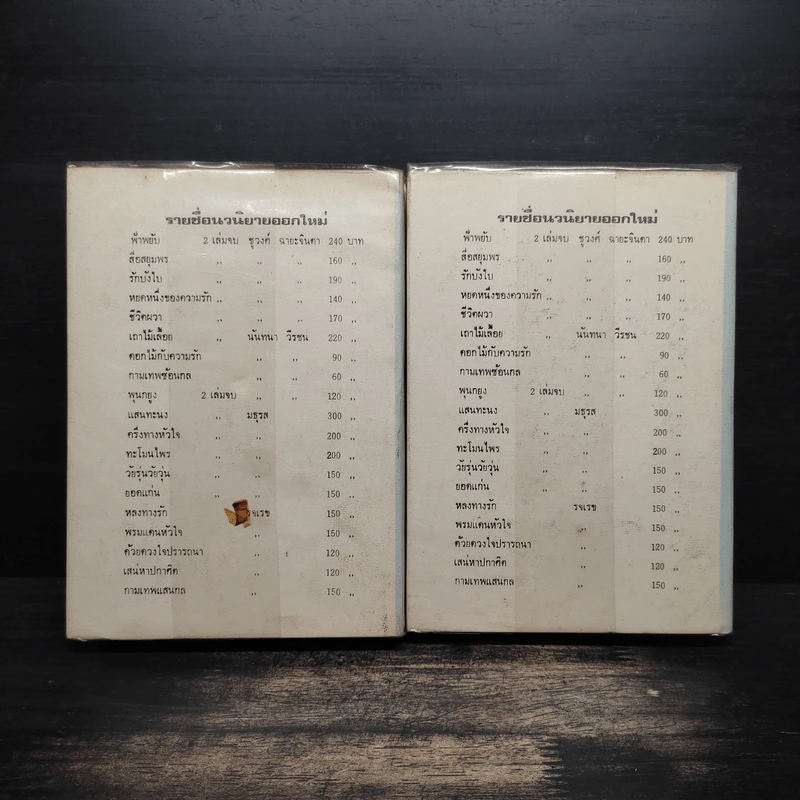 รายชื่อนวนิยายออกใหม่
ฟ้าพยับ 2 เล่มจบ ชูวงศ์ ฉายะจินดา 240 บาท
สื่อสยุมพร ,, ,, ,, 160 ,,
รักบังใบ ,, ,, ,, 190 ,,
หยดหนึ่งของความรัก ,, ,, ,, 140 ,,
ชีวิตผวา ,, ,, ,, 170 ,,
เถาไม้เลื้อย ,, นันทนา วีรชน 220 ,,
ดอกไม้กับความรัก ,, ,, 90 ,,
กามเทพซ้อนกล ,, ,, 60 ,,
พุนกยูง 2 เล่มจบ ,, ,, 120 ,,
แสนทะนง ,, มธุรส 300 ,,
ครึ่งทางหัวใจ ,, ,, 200 ,,
ทะโมนไพร ,, ,, 200 ,,
วัยรุ่นวัยวุ่น ,, ,, 150 ,,
ยอดแก่น ,, ,, 150 ,,
หลงทางรัก 150 ,,
พรมแดนหัวใจ ,, 150 ,,
ด้วยดวงใจปรารถนา ,, 120 ,,
เสน่หาปกาศิต ,, 120 ,,
กามเทพแสนกล ,, 150 ,,
รายชื่อนวนิยายออกใหม่
ฟ้าพยับ 2 เล่มจบ ชูวงศ์ ฉายะจินดา 240 บาท
สื่อสยุมพร ,, ,, ,, 160 ,,
รักบังใบ ,, ,, ,, 190 ,,
หยดหนึ่งของความรัก ,, ,, ,, 140 ,,
ชีวิตผวา ,, ,, ,, 170 ,,
เถาไม้เลื้อย ,, นันทนา วีรชน 220 ,,
ดอกไม้กับความรัก ,, ,, 90 ,,
กามเทพซ้อนกล ,, ,, 60 ,,
พุนกยูง 2 เล่มจบ ,, ,, 120 ,,
แสนทะนง ,, มธุรส 300 ,,
ครึ่งทางหัวใจ ,, ,, 200 ,,
ทะโมนไพร ,, ,, 200 ,,
วัยรุ่นวัยวุ่น ,, ,, 150 ,,
ยอดแก่น ,, ,, 150 ,,
หลงทางรัก รจเรข 150 ,,
พรมแดนหัวใจ ,, 150 ,,
ด้วยดวงใจปรารถนา ,, 120 ,,
เสน่หาปกาศิต ,, 120 ,,
กามเทพแสนกล ,, 150 ,,